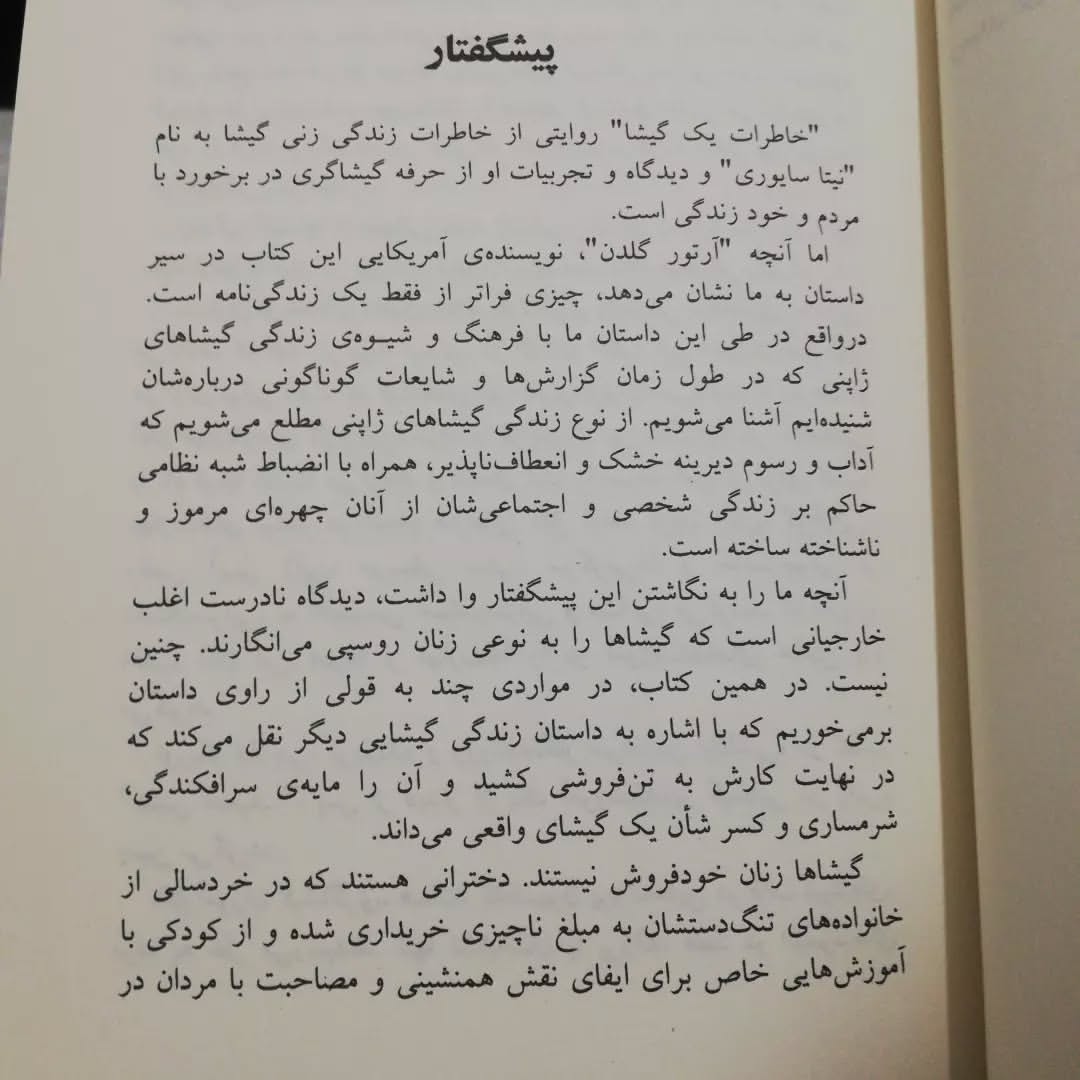 پیشگفتار
"خاطرات یک گیشا" روایتی از خاطرات زندگی زنی گیشا به نام
"نیتا سایوری" و دیدگاه و تجربیات او از حرفه گیشاگری در برخورد با
مردم و خود زندگی است.
اما آنچه "آرتور گلدن"، نویسنده‌ی آمریکایی این کتاب در سیر
داستان به ما نشان می‌دهد، چیزی فراتر از فقط یک زندگی‌نامه است.
درواقع در طی این داستان ما با فرهنگ و شیوه‌ی زندگی گیشاهای
ژاپنی که در طول زمان گزارش‌ها و شایعات گوناگونی درباره‌شان
شنیده‌ایم آشنا می‌شویم. از نوع زندگی گیشاهای ژاپنی مطلع می‌شویم که
آداب و رسوم دیرینه خشک و انعطاف‌ناپذیر، همراه با انضباط شبه نظامی
حاکم بر زندگی شخصی و اجتماعی‌شان از آنان چهره‌ای مرموز و
ناشناخته ساخته است.
آنچه ما را به نگاشتن این پیشگفتار وا داشت، دیدگاه نادرست اغلب
خارجیانی است که گیشاها را به نوعی زنان روسپی می‌انگارند. چنین
نیست. در همین کتاب، در مواردی چند به قولی از راوی داستان
برمی‌خوریم که با اشاره به داستان زندگی گیشایی دیگر نقل می‌کند که
در نهایت کارش به تن‌فروشی کشید و آن را مایه‌ی سرافکندگی،
شرمساری و کسر شأن یک گیشای واقعی می‌داند.
گیشاها زنان خودفروش نیستند. دخترانی هستند که در خردسالی از
خانواده‌های تنگ‌دستشان به مبلغ ناچیزی خریداری شده و از کودکی با
آموزش‌هایی خاص برای ایفای نقش همنشینی و مصاحبت با مردان در